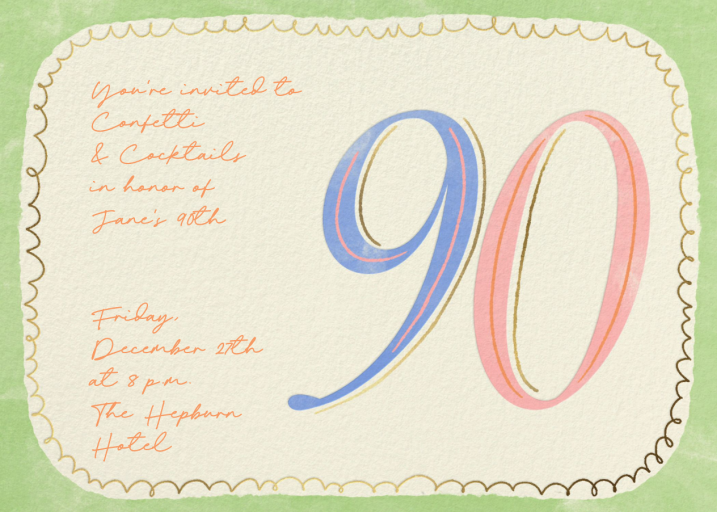 You're invited to
Confetti
& Cocktails
in honor of
Jane's 90th
90
Friday,
December 27th
at 8 p.m.
The Hepburn
Hotel